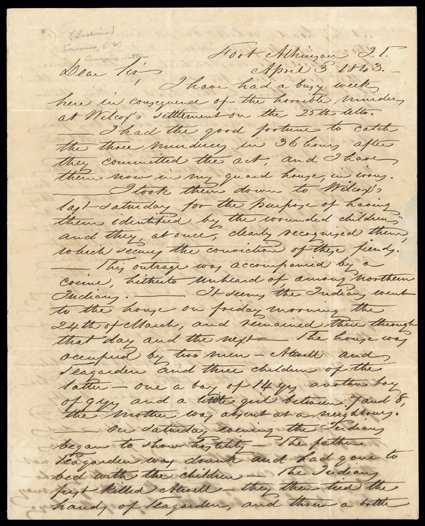 (Indians)
Sumner E. V.
Fort Atkinson I.T.
April 5 1843.
Dear Sir,
I have had a busy week
here in consequence of the horrible murders
at Wilcox's settlement on the 25th ulto.
— I had the good fortune to catch
the three murderers in 36 hours after
they committed the act, and I have
them now in my guard house, in irons.
— I took them down to Wilcox's
last Saturday for the purpose of having
them identified by the wounded children
and they, at once, clearly recognised them,
which secures the conviction of these fiends.
— This outrage was accompanied by a
crime, hitherto unheard of among northern
Indians. — It seems the Indians went
to the house on friday morning the
24th of March, and remained there through
that day and the next — The house was
occupied by two men — Atwell and
Teagarden and three children of the
latter — one a boy of 14 yrs another boy
of 9 yrs and a little girl between 7 and 8,
the Mother was absent at a neighbours.
— On Saturday evening the Indians
began to show hostility — The father
Teagarden was drunk and had gone to
bed with the children — The Indians
first killed Atwell — they then tied the
hands of Teagarden, and threw a bottle